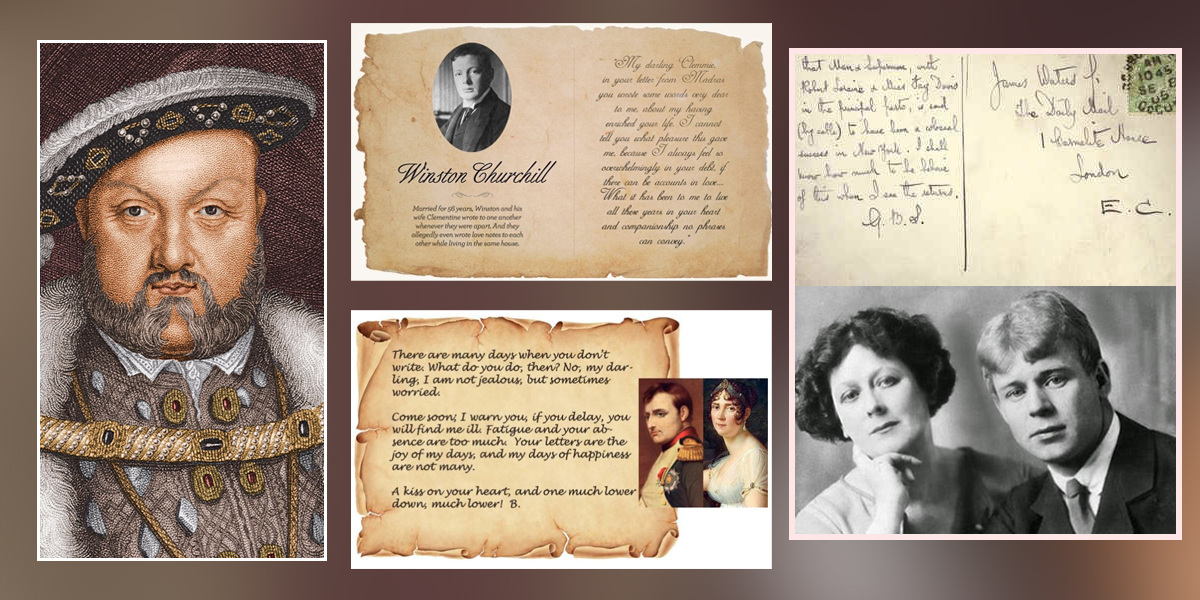 Winston Churchill
Married for 56 years, Winston and his
wife Clementine wrote to one another
whenever they were apart. And they
allegedly even wrote love notes to each
other while living in the same house.
"My darling Clemmie,
in your letter from Madras
you wrote some words very dear
to me, about my having
enriched your life. I cannot
tell you what pleasure this gave
me, because I always feel so
overwhelmingly in your debt, if
there can be accounts in love...
What it has been to me to live
all these years in your heart
and companionship no phrases
can convey."
There are many days when you don't
write. What do you do, then? No, my dar-
ling, I am not jealous, but sometimes
worried.
Come soon; I warn you, if you delay, you
will find me ill. Fatigue and your ab-
sence are too much. Your letters are the
joy of my days, and my days of happiness
are not many.
A kiss on your heart, and one much lower
down, much lower! B.
that Man & Superman, with
Robert Loraine & Miss Fay Davis
in the principal parts, is said
(by cable) to have been a colossal
success in New York. I shall
know how much to believe
of this when I see the returns.
G. B. S.
James Waters
The Daily Mail
Carmelite House
London
E. C.